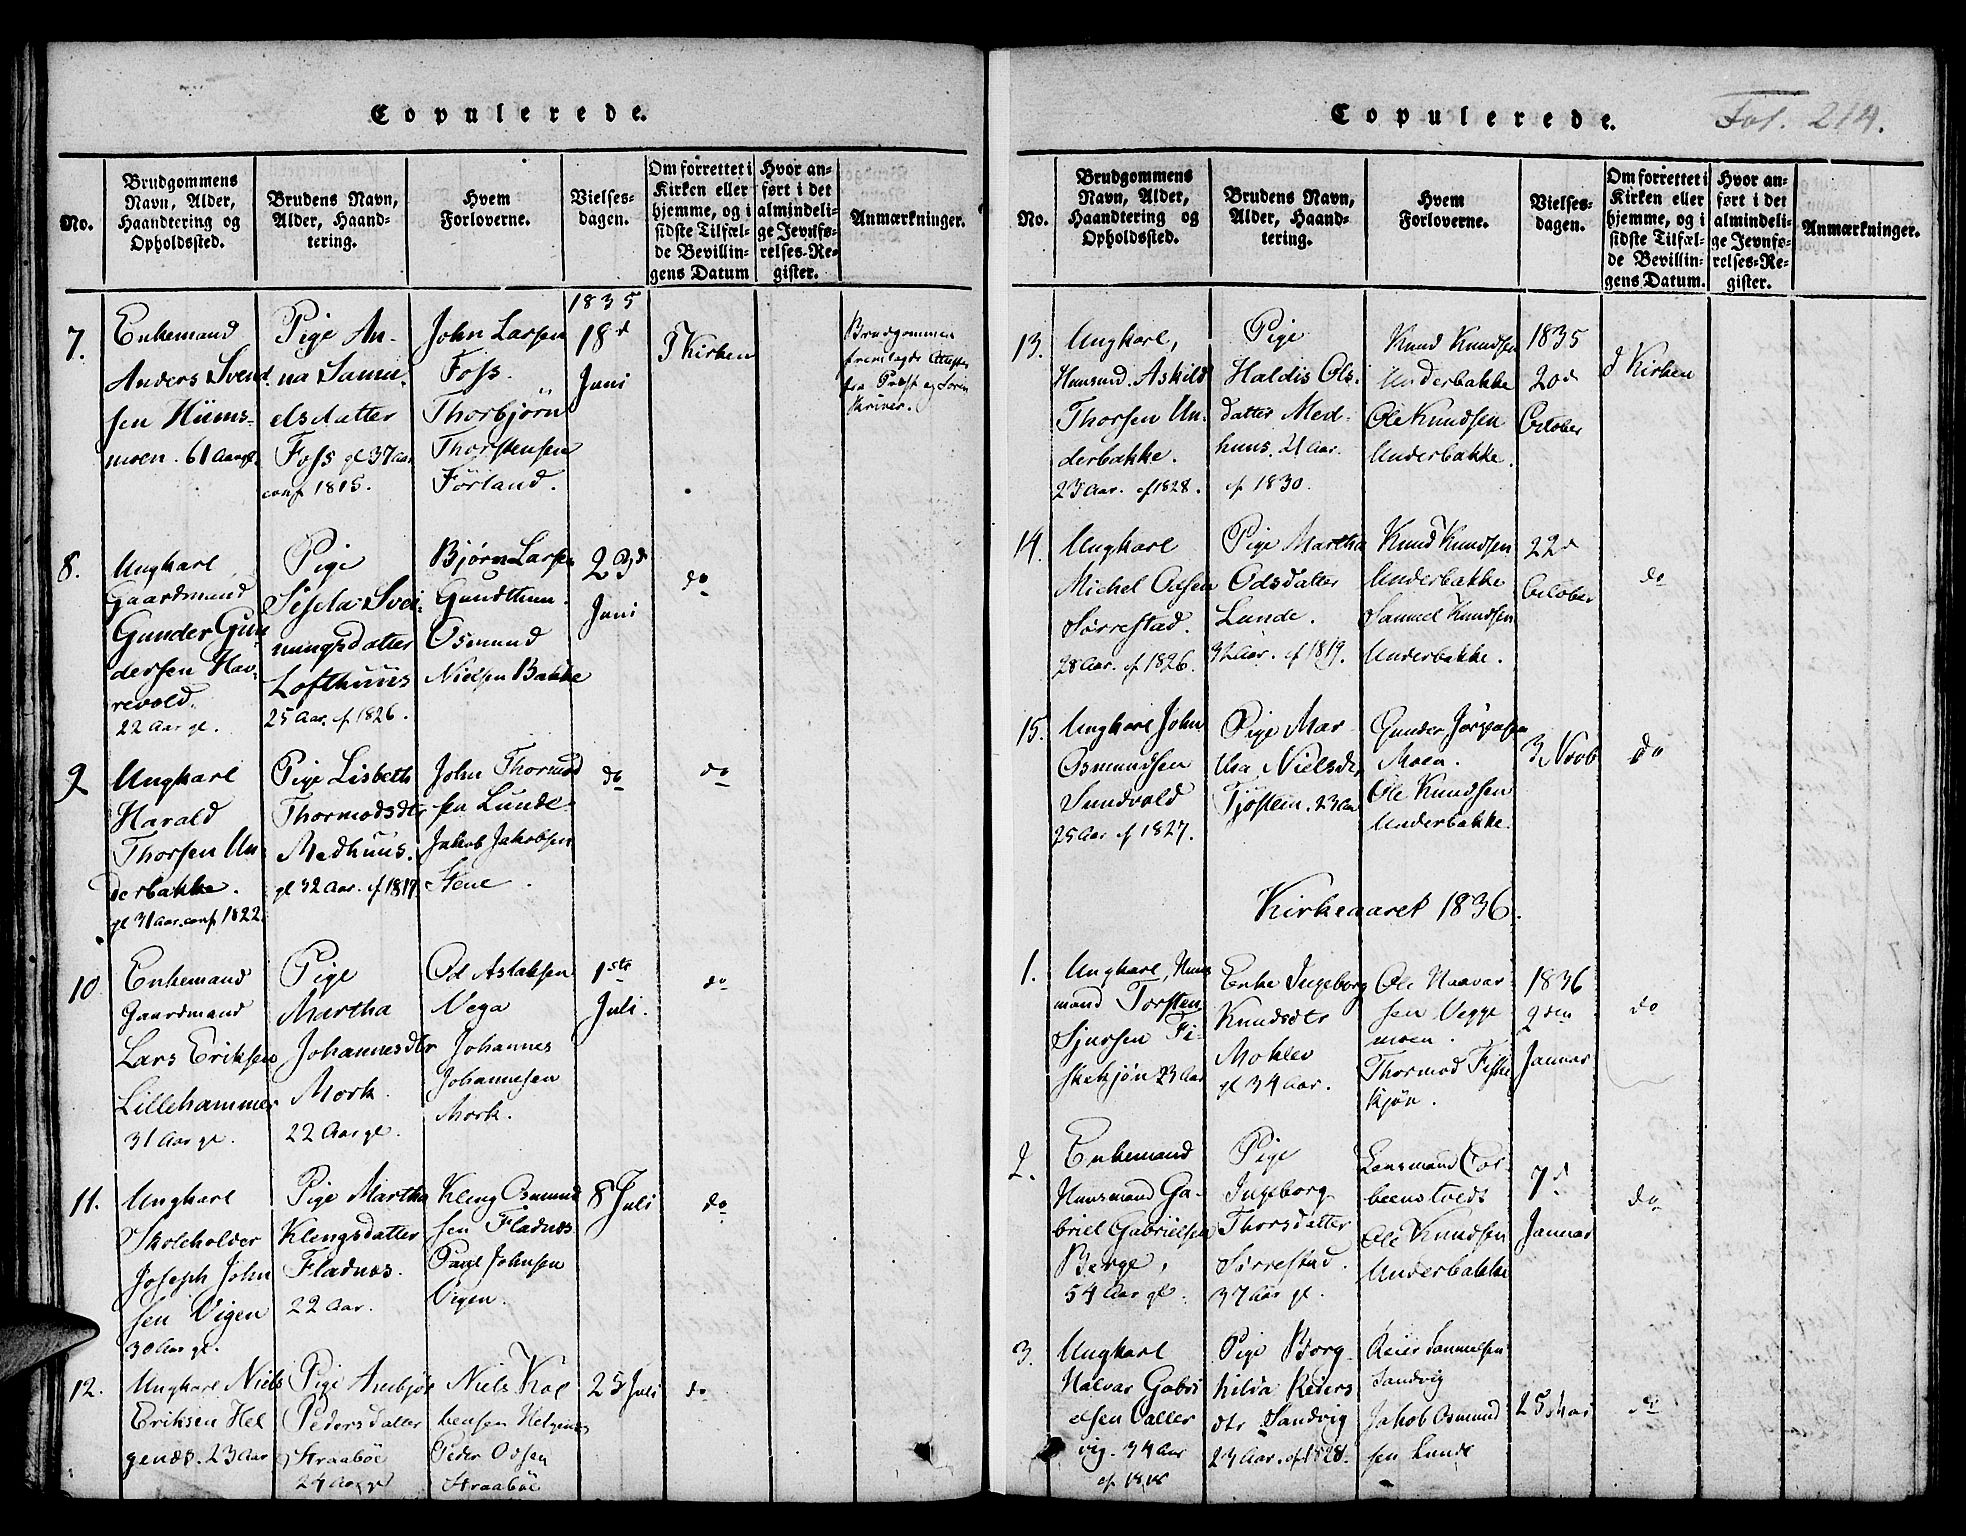 Copulerede.
No.
Brudgommens
Navn, Alder,
Haandtering og
Opholdssted.
Brudens Navn,
Alder, Haand-
tering.
Hvem
Forloverne.
Vielses-
dagen.
Om forrettet i
Kirken eller
hjemme, og i
sidste Tilfæl-
de Bevillin-
gens Datum
Hvor an-
ført i det
almindeli-
ge Jevnfø-
relses-Re-
gister.
Anmærkninger.
7.
Enkemand
Anders Svend
sen Hüms-
moen. 61 Aargl.
Pige An-
na Samu-
elsdatter
Foss gl 37 aar
conf 1815.
John Larsen
Foss.
Thorbjörn
Thorstensen
Förland.
1835
18d
Juni
I Kirken
Brudgommen
fremlagde
fra Provst og Soren
skriver.
8.
Ungkarl
Gaardmand
Gunder Gun
dersen Hav-
revold.
22 Aar gl.
Pige
Siselas Svei-
nungsdatter
Lofthuus
25 Aar. cf 1826.
Bjørn Larsen
Gundthun.
Osmund
Nielsen Bakke
Juni
do
9
Ungkarl
Harald
Thorsen Un-
derbakke.
gl 31 Aar. conf 1822.
Pige Lisbeth
Thormodsdtr
Medhuus.
gl 32 Aar. cf 1819
John Thormod
sen Lunde
Jakob Jakobsen
Stene.
do
do
10
Enkemand
Gaardmand
Lars Eriksen
Lillehammer
31 Aar gl.
Pige
Martha
Johannesdtr
Mork.
22 Aar gl.
Od Aslaksen
Vega
Johannes
Johannesen
Mork.
1ste
Juli.
do
11.
Ungkarl
Skoleholder
Joseph John
sen Vigen
30 Aar gl.
Pige Martha
Klengsdatter
Fladnæs.
22 Aar.
Kleng Osmund
sen Fladnæs
Paul Johnsen
Vigen.
8 Juli
do
12.
Ungkarl Niels
Eriksen Hel
genæs. 23 Aar
Pige Anbjør
Pedersdatter
Straabøe
24 Aar gl
Niels Kol
bensen Helgenæs
Peder Odsen
Straabøe
25 Juli
do
Copulerede.
Fol. 214.
No.
Brudgommens
Navn, Alder,
Haandtering og
Opholdssted.
Brudens Navn,
Alder, Haand-
tering.
Hvem
Forloverne.
Vielses-
dagen.
Om forrettet i
Kirken eller
hjemme, og i
sidste Tilfæl-
de Bevillin-
gens Datum.
Hvor an-
ført i det
almindeli-
ge Jevnfø-
relses-Re-
gister.
Anmærkninger.
13.
Ungkarl,
Huusmd. Askild
Thorsen Un-
derbakke.
23 Aar. cf 1828.
Pige
Haldis Ols-
datter Med-
huus. 21 Aar.
cf 1830.
Knud Knudsen
Underbakke
Ole Knudsen
Underbakke.
1835
20d
October
I Kirken
14.
Ungkarl
Michel Olsen
Sørrestad.
28 Aar. cf 1826.
Pige Martha
Odsdatter
Lunde.
32 Aar. cf 1819.
Knud Knudsen
Underbakke
Samuel Knudsen
Underbakke.
22d
October
do
15.
Ungkarl John
Osmundsen
Sundvold
25 Aar cf 1827.
Pige Mar-
tha Nielsdtr
Tjøstem. 23 Aar
Gunder Jørgensen
Moen.
Ole Knudsen
Underbakke.
3 Novb
do
Kirkeaaret 1836.
1.
Ungkarl, Huus
mand Torsten
Sjursen Fi-
skekjön 23 Aar
Enke Ingeborg
Knudsdtr
Moklev
gl 34 Aar.
Ole Haavar
sen Vegge
moen.
Thormod Fiske
kjön.
1836
2den
Januar
do
2.
Enkemand
Huusmand Ga-
briel Gabrielsen
Berge,
54 Aar gl.
Pige
Ingeborg
Thorsdatter
Sørrestad.
37 Aar gl.
Lensmand Col-
beenstvedt
Ole Knudsen
Underbakke
7d
Januar
do
3.
Ungkarl
Halvar Gabri
elsen Valler
vig. 34 Aar
cf 1818
Pige Borg
hilda Reiers
dtr Sandvig
23 Aar. cf 1828.
Reier Samuelsen
Sandvig
Jakob Osmund
sen Lunde
do